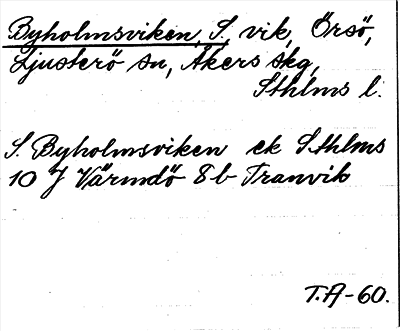 Byholmsviken, S., vik, Örsö,
Ljusterö sn, Åkers skg,
Sthlms l.
S. Byholmsviken ek Sthlms
10 J Värmdö 8 b Tranvik
T.A-60.